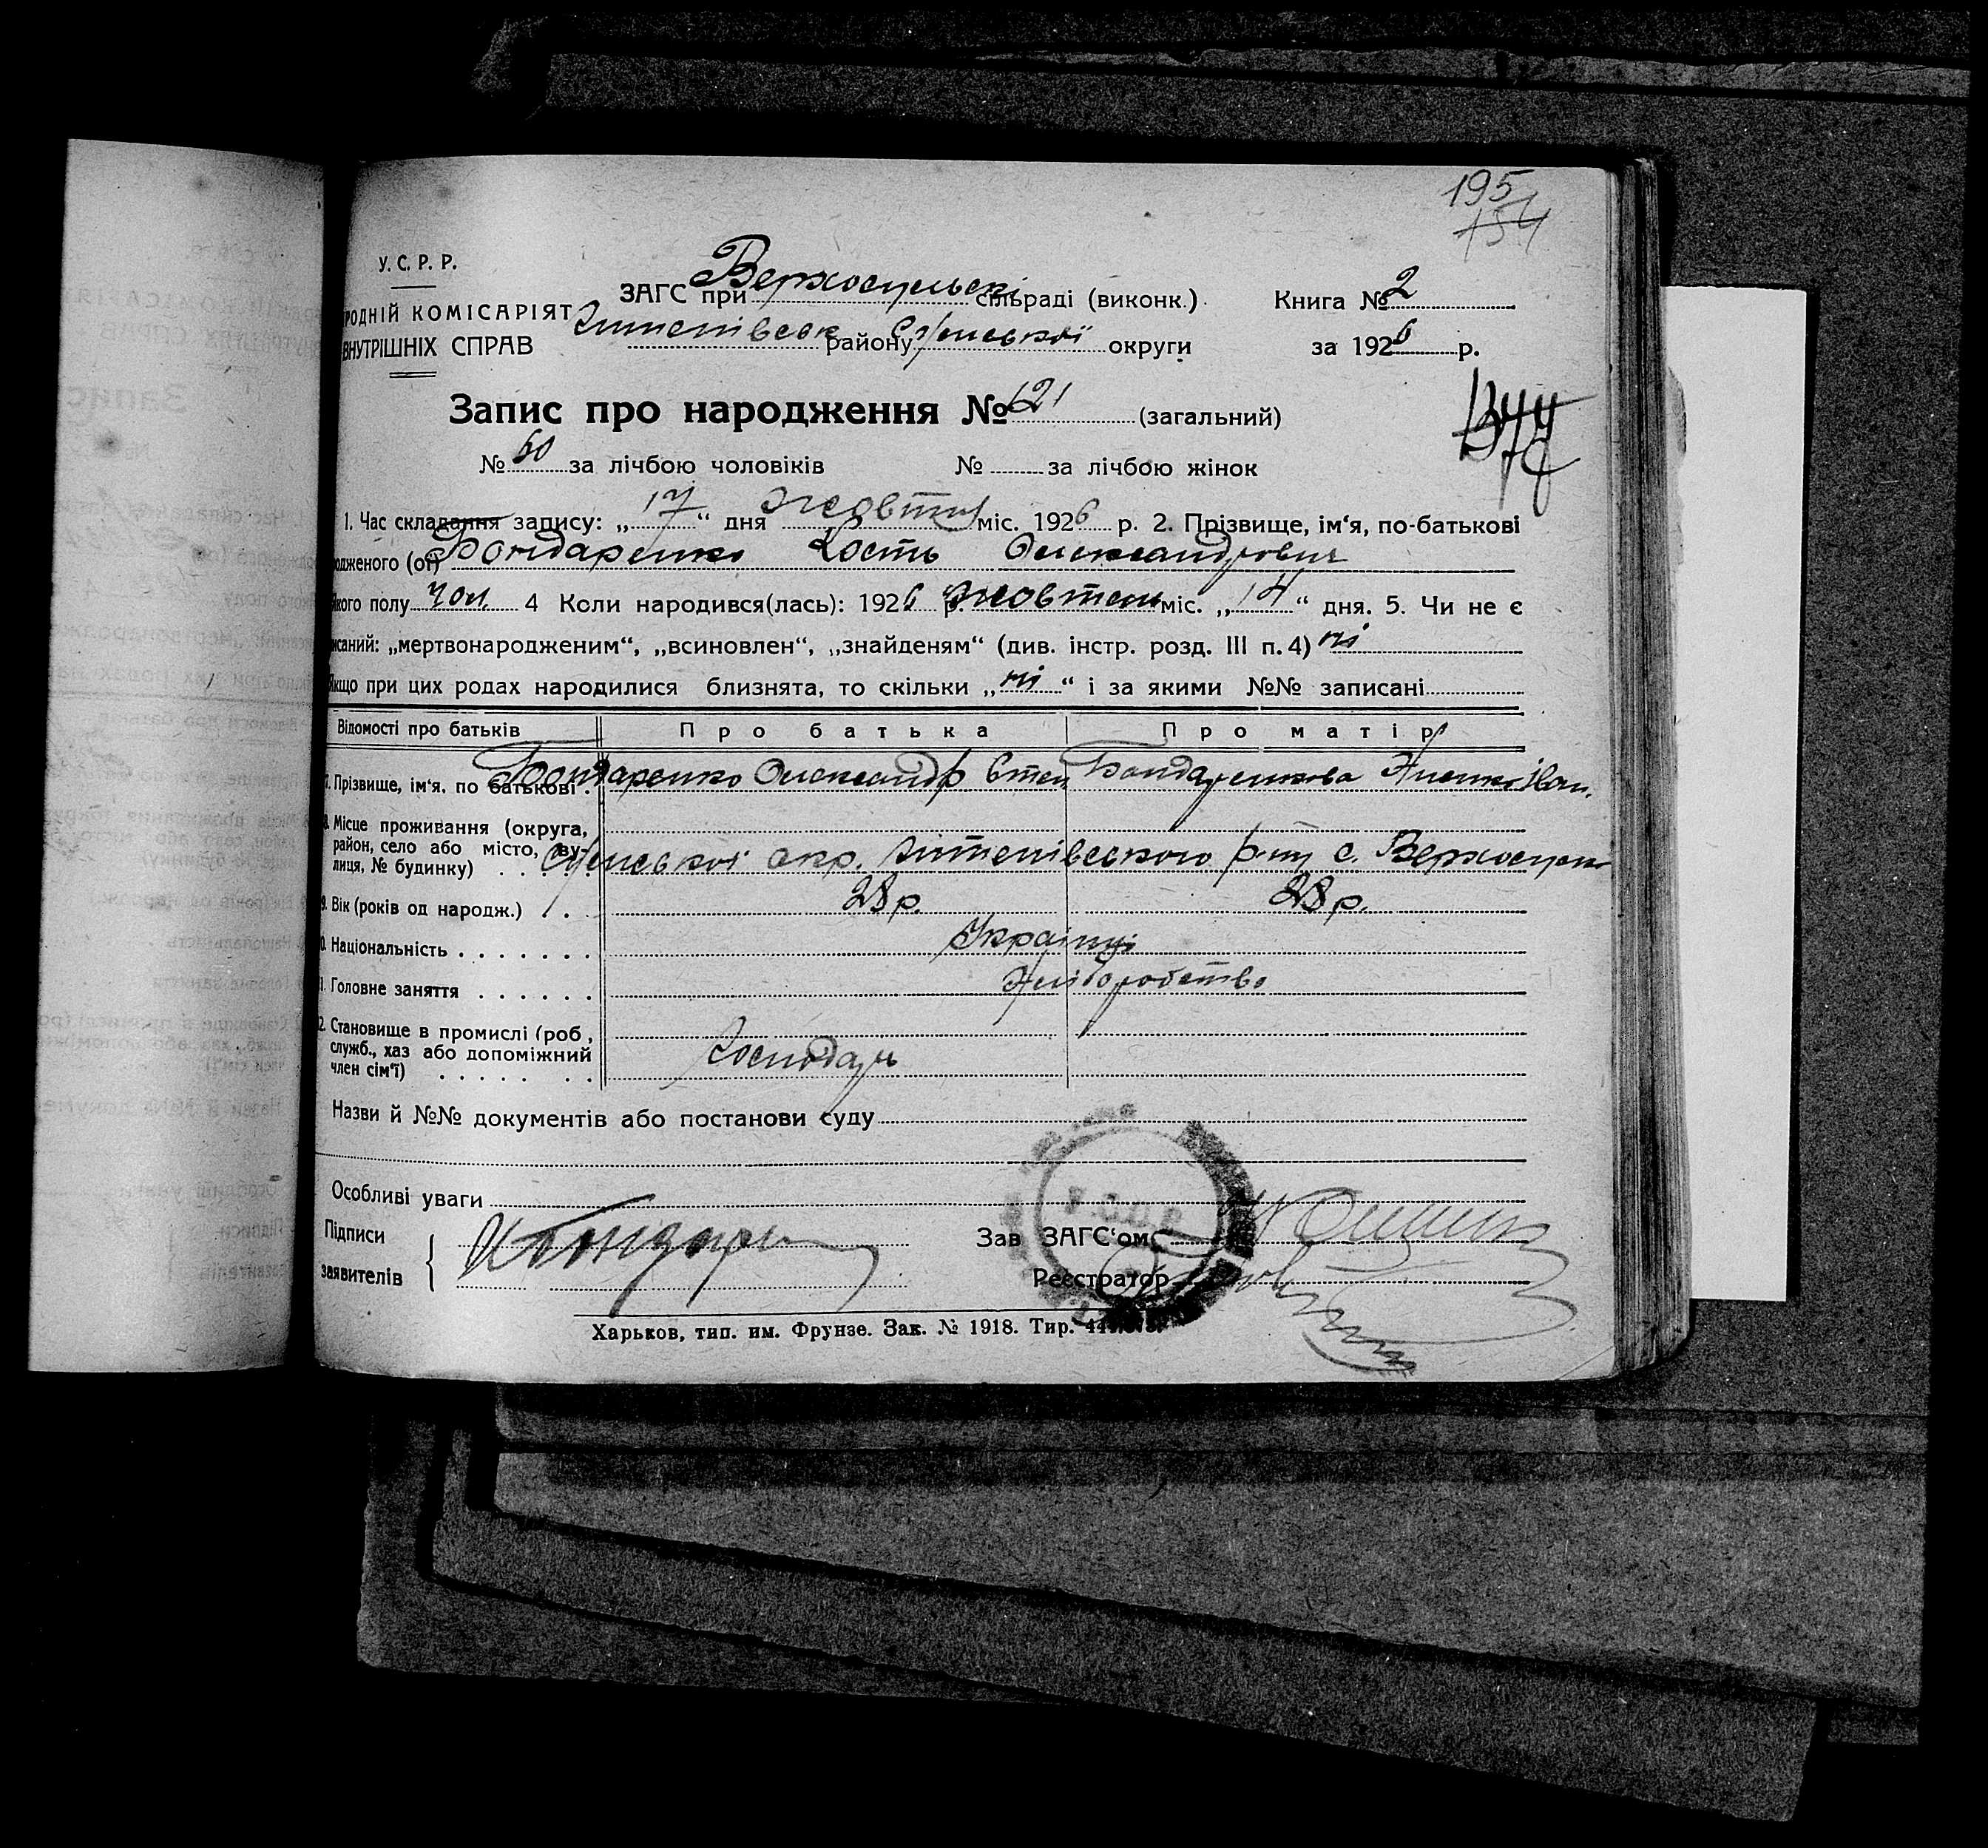 195
154
У. С. Р. Р.
РОДНІЙ КОМІСАРІЯТ
ВНУТРІШНІХ СПРАВ
ЗАГС при Верхосульскі сільраді (виконк.)
Штепівськ району Сумської округи
Книга № 2
за 1926 р.
Запис про народження № 121 (загальний)
№ 60 за лічбою чоловіків № за лічбою жінок
1. Час складання запису: „17“ дня жовтня міс. 1926 р. 2. Прізвище, ім‘я, по-батькові
одженого (ої) Бондаренко Кость Олександрович
якого полу чол. 4 Коли народився(лась): 1926 р. жовтень міс. „14“ дня. 5. Чи не є
исаний: „мертвонародженим“, „всиновлен“, „знайденям“ (див. інстр. розд. III п. 4) ні
Якщо при цих родах народилися близнята, то скільки „ні“ і за якими №№ записані
Відомості про батьків Про батька Про матір
7. Прізвище, ім‘я. по батькові . Бондаренко Олександр Степ Бондаренкова Ян.
8. Місце проживання (округа,
район, село або місто, ву-
лиця, № будинку) . . . . Сумської окр. Штепівського р-ну с. Верхосулка
9. Вік (років од народж.) . . 28 р. 28 р.
10. Національність . . . . . . . Українці
11. Головне заняття . . . . . . Хліборобство
12. Становище в промислі (роб,
служб., хаз або допоміжний
член сім‘ї) . . . . . . . Господарь
Назви й №№ документів або постанови суду
Особливі уваги
Підписи
заявителів
Зав ЗАГС‘ом
Реєстратор
Харьков, тип. им. Фрунзе. Зак. № 1918. Тир.